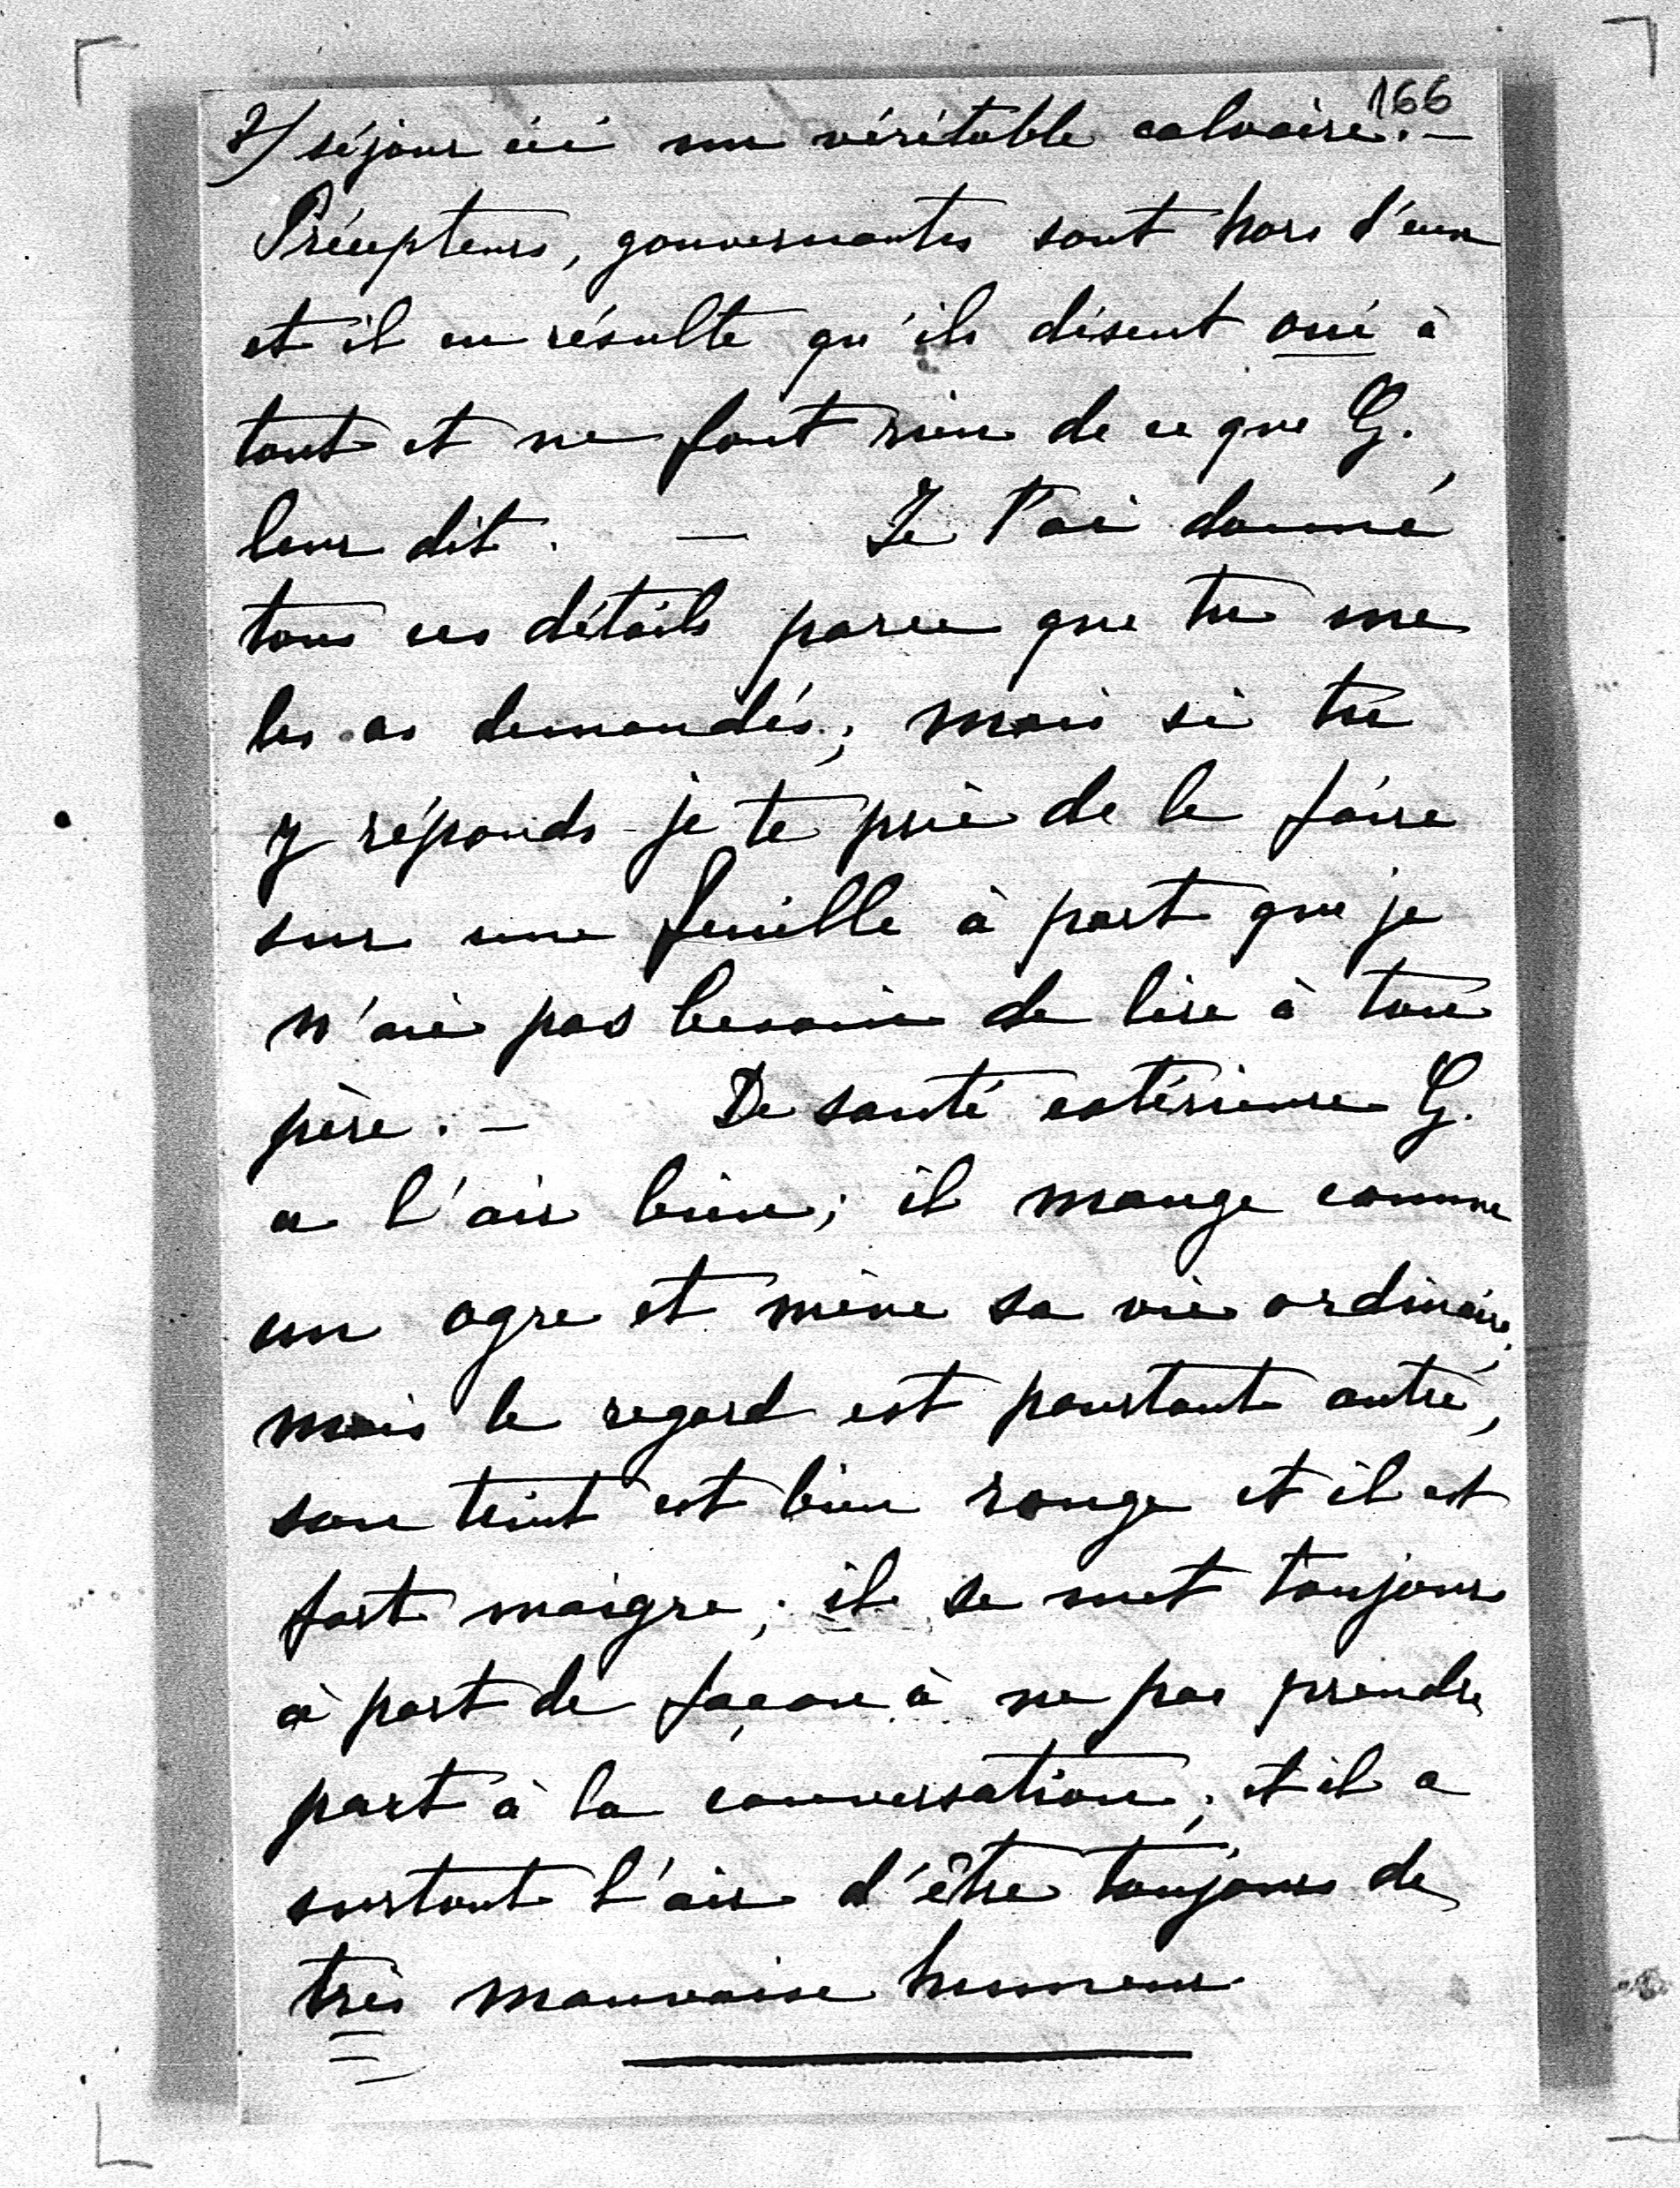 166
2/ séjour ici un véritable calvaire. –
Précepteurs, gouvernantes sont hors d'eux
et il en résulte qu'ils disent oui à
tout et ne font rien de ce que G.
leur dit. – Je t'ai donné
tous ces détails parce que tu me
les as demandés; mais si tu
y réponds je te prie de le faire
sur une feuille à part que je
n'aie pas besoin de lire à ton
père. – De santé extérieure G.
a l'air bien; il mange comme
un ogre et mène sa vie ordinaire,
mais le regard est pourtant autre,
son teint est bien rouge et il est
fort maigre; il se met toujours
à part de façon à ne pas prendre
part à la conversation; et il a
surtout l'air d'être toujours de
très mauvaise humeur